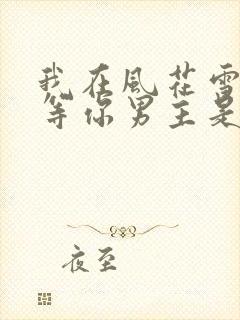 我在風花雪
等你男主是
夜至